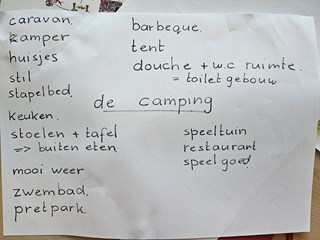 caravan.
kamper
huisjes
stil
stapelbed.
keuken.
stoelen + tafel
=> buiten eten
mooi weer
zwembad.
pretpark.
barbeque.
tent
douche + w.c ruimte.
= toilet gebouw
de camping
speeltuin
restaurant
speelgoed.